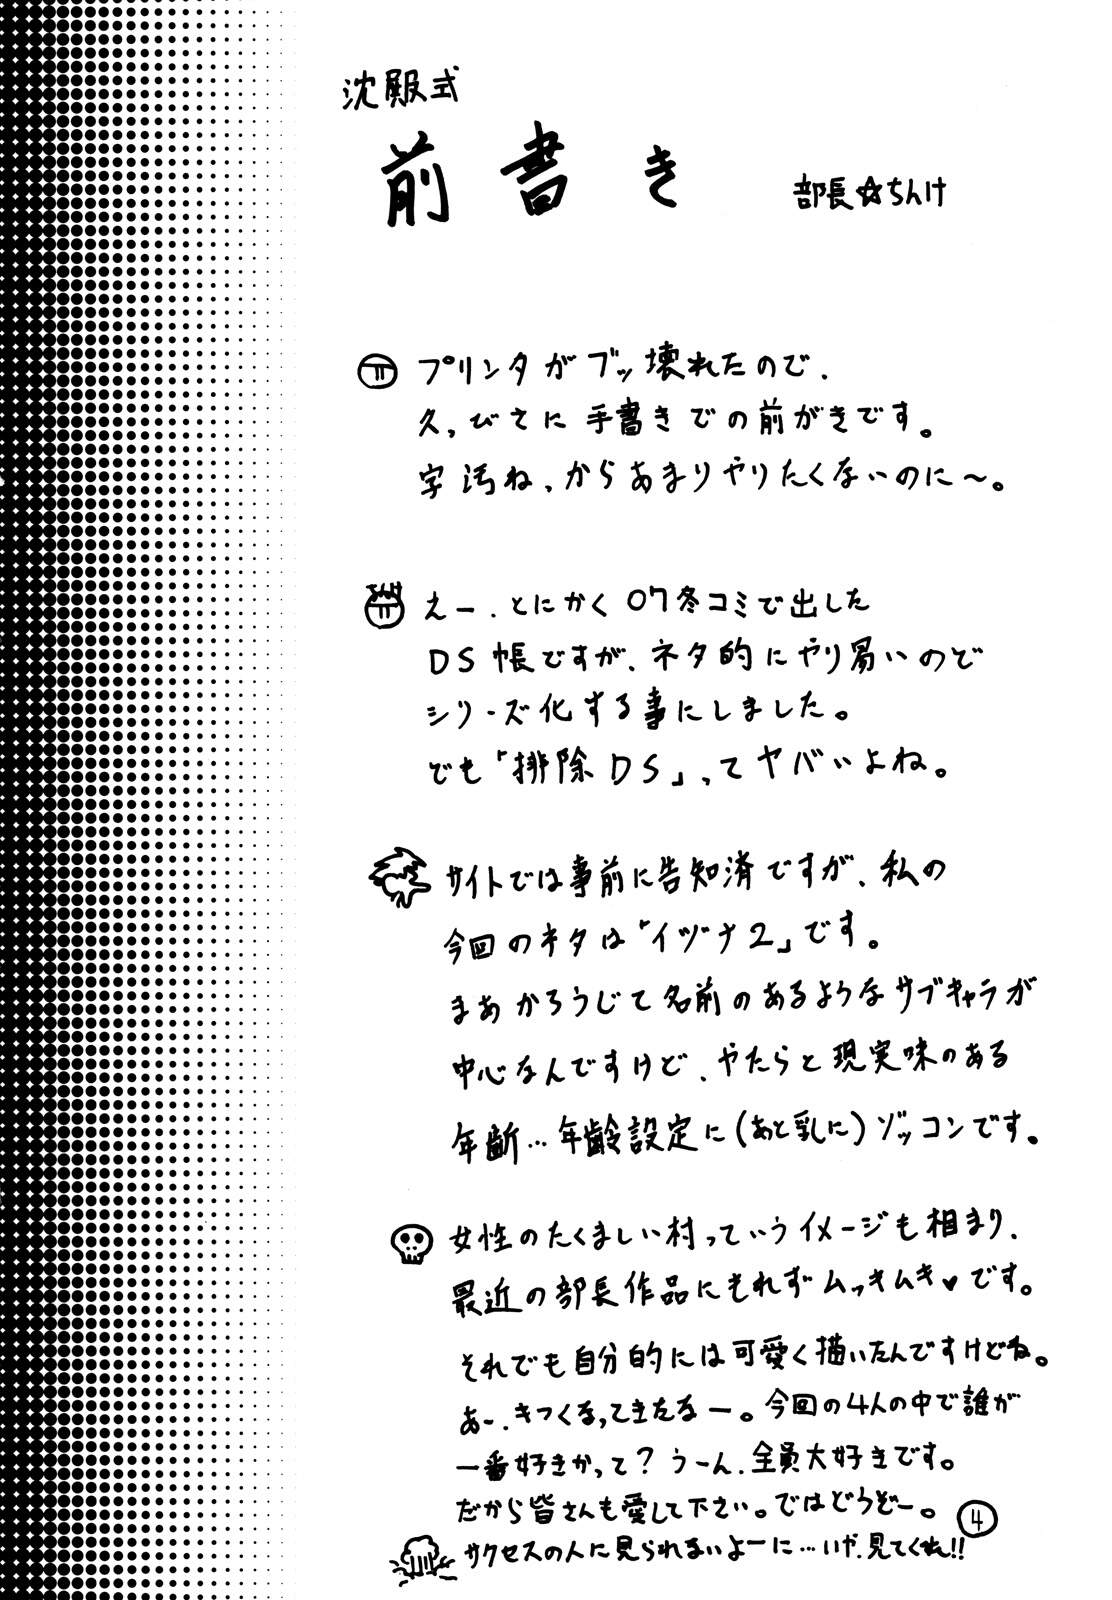 沈殿式
前書き
部長☆ちんけ
プリンタがブッ壊れたので、
久っびさに手書きでの前がきです。
字汚ねぇからあまりやりたくないのに〜。
えー、とにかく07冬コミで出した
DS帳ですが、ネタ的にやり易いので
シリーズ化する事にしました。
でも「排除DS」ってヤバいよね。
サイトでは事前に告知済ですが、私の
今回のネタは「イヅナ2」です。
まあかろうじて名前のあるようなサブキャラが
中心なんですけど、やたらと現実味のある
年齢…年齢設定に(あと乳に)ゾッコンです。
女性のたくましい村っていうイメージも相まり、
最近の部長作品にもれずムっキムキ♥です。
それでも自分的には可愛く描いたんですけどね。
あ〜、きつくなってきたなー。今回の4人の中で誰が
一番好きかって?うーん、全員大好きです。
だから皆さんも愛して下さい。ではどうぞー。
サクセスの人に見られないよーに…いや、見てくれ!!
4